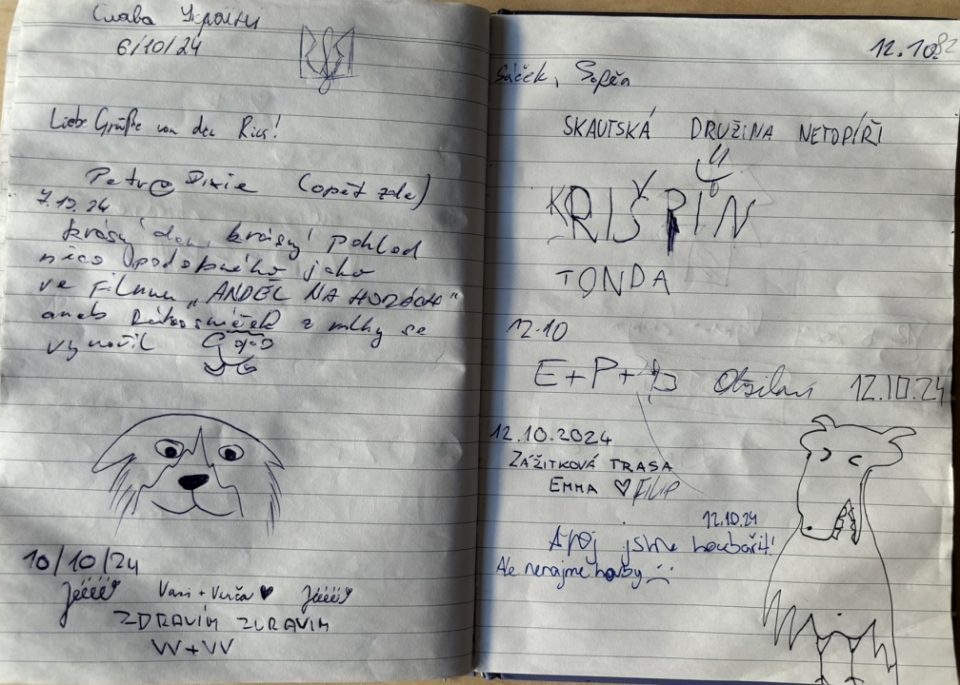 Слава Україні
6/10/24
Liebe Grüße von den Ries!
Petr@ Dixie (opět zde)
7.10.24
krásný den, krásný pohled
něco podobného jako
ve filmu „ANDĚL NA HORÁCH“
aneb z mlhy se
vynořil
10/10/24
Jéééé Vasi + Verča ♥ Jéééé
ZDRAVÍM ZDRAVIM
VV+VV
12.10.
Sáček,
SKAUTSKÁ DRUŽINA NETOPÍŘI
KRIŠPÍN
TONDA
12.10
E+P+
12.10.24
12.10.2024
ZÁŽITKOVÁ TRASA
EMMA ♥ FILIP
12.10.24
Ahoj jsme houbaři!
Ale nemáme houby :(